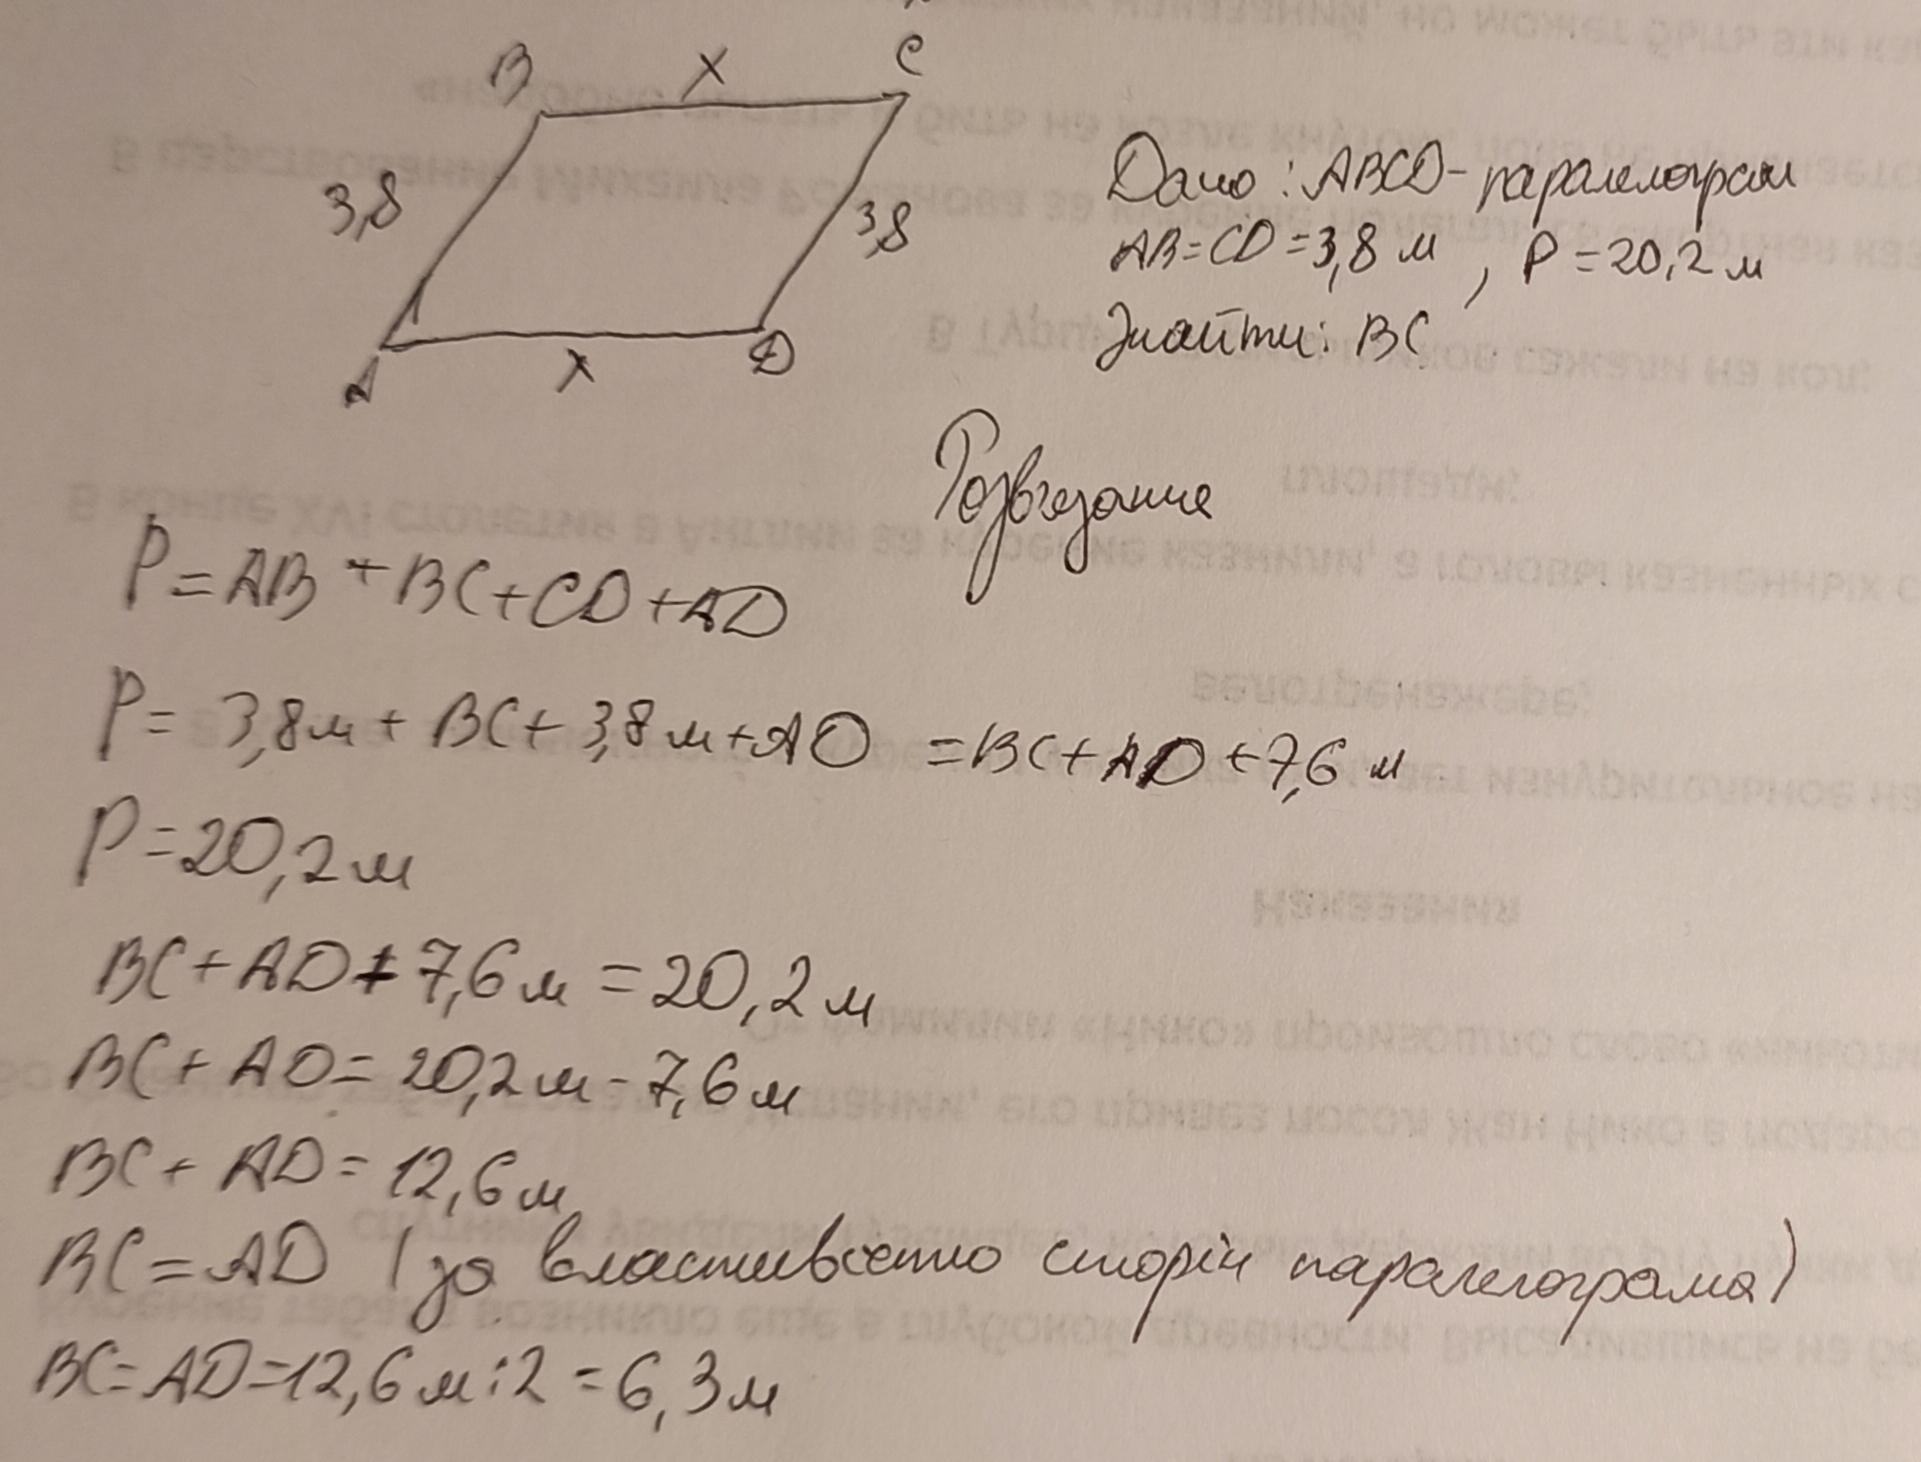 B x C
3,8 3,8
A x D
Дано: ABCD - паралелограм
AB = CD = 3,8 м, P = 20,2 м
Знайти: BC
Розв'язання
P = AB + BC + CD + AD
P = 3,8 м + BC + 3,8 м + AD = BC + AD + 7,6 м
P = 20,2 м
BC + AD + 7,6 м = 20,2 м
BC + AD = 20,2 м - 7,6 м
BC + AD = 12,6 м
BC = AD (за властивістю сторін паралелограма)
BC = AD = 12,6 м : 2 = 6,3 м